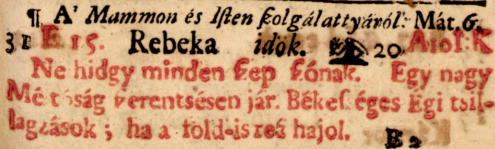 ¶ A' Mammon és Isten ſzolgálattyáról. Mát. 6.
31 E 15. Rebeka idők. 20
Ne hidgy minden ſzép ſzónak. Egy nagy
Mé tóság verentsésen jár. Békeſséges Egi tsil-
lagzások; ha a fold-is reá hajol.
B 2